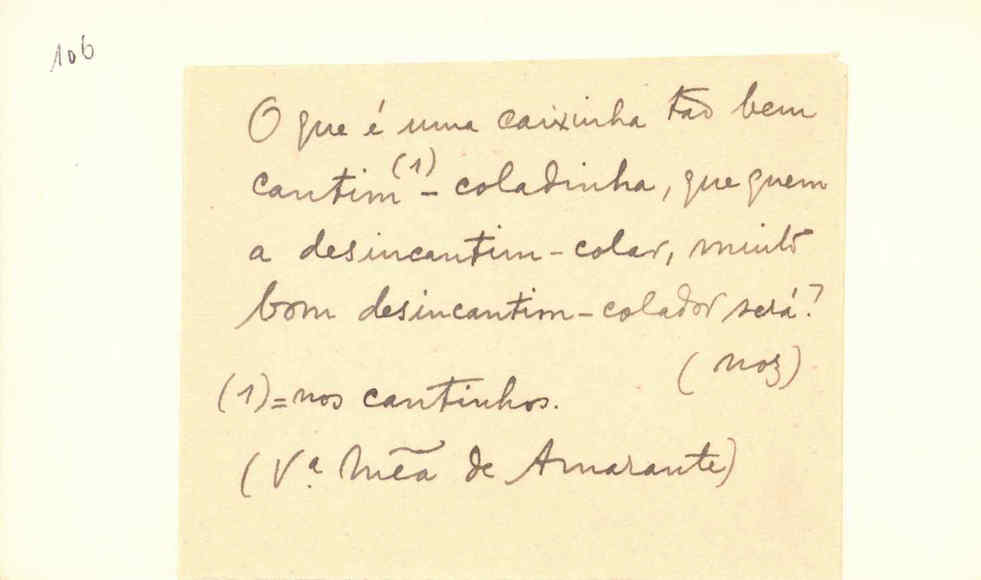 106
O que é uma caixinha tão bem
cantim(1)-coladinha, que quem
a desincantim-colar, muito
bom desincantim-colador será?
(noz)
(1)=nos cantinhos.
(Vª. Meã de Amarante)